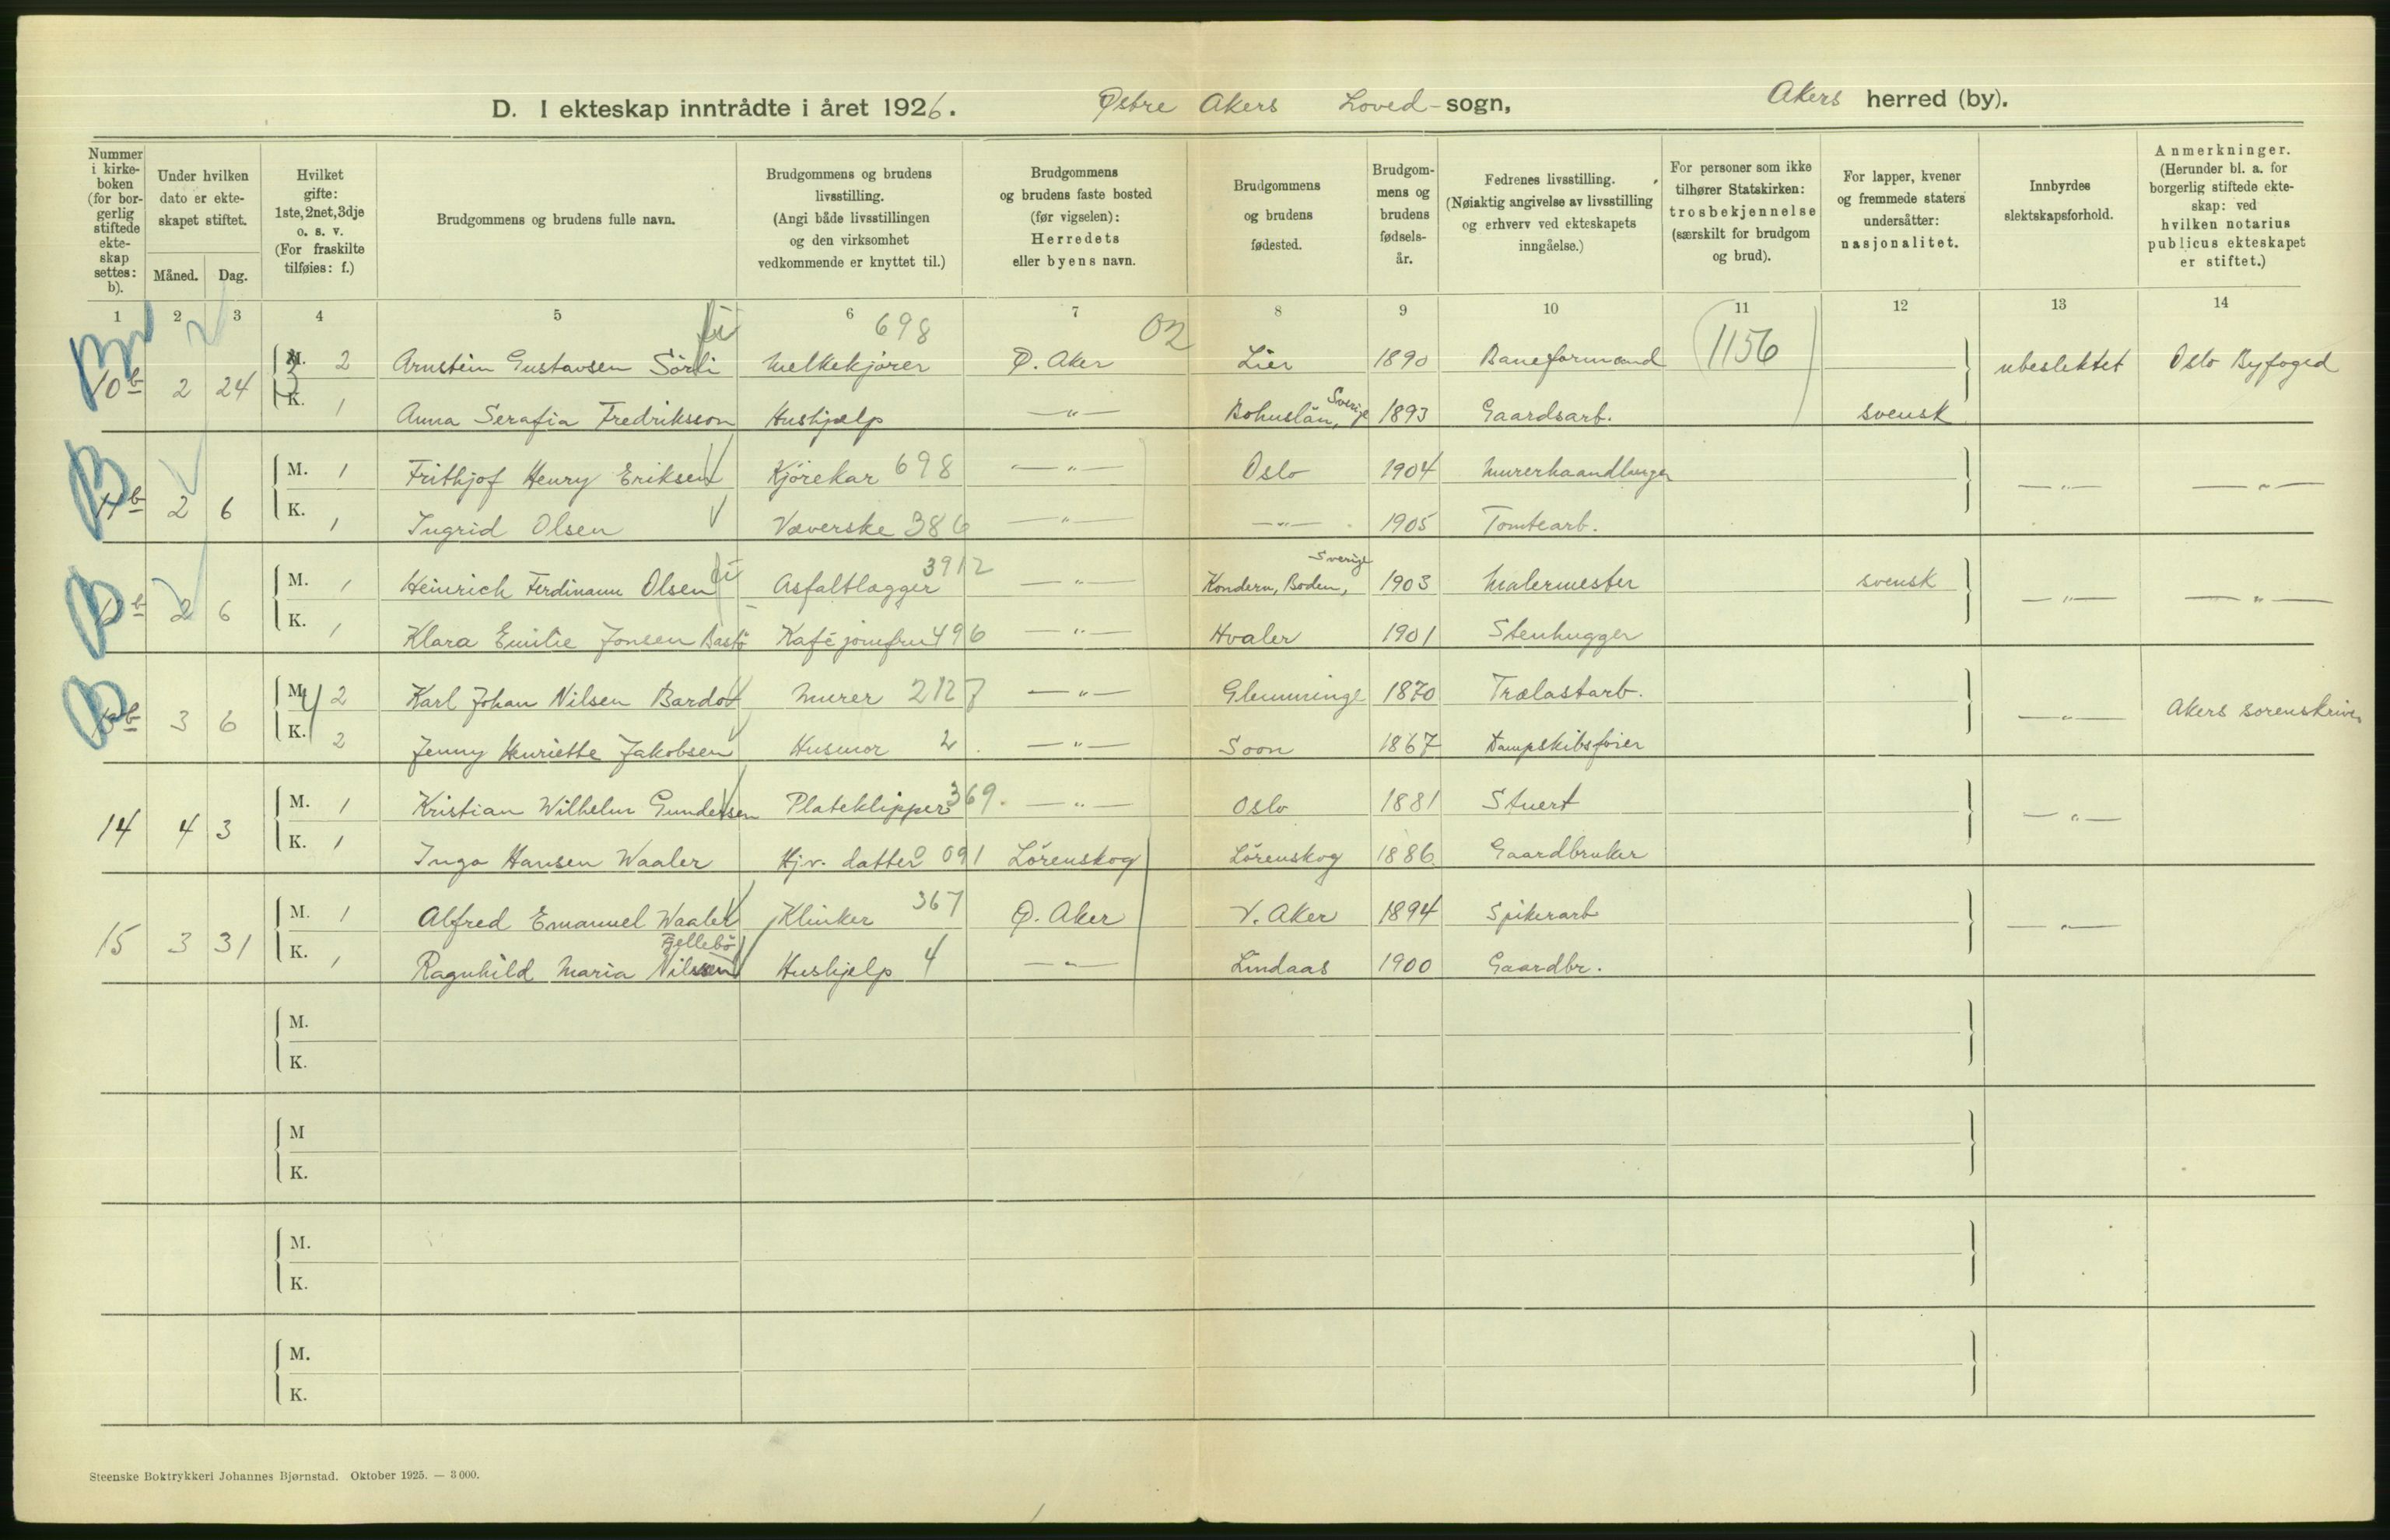 D. I ekteskap inntrådte i året 1926. Østre Akers Hoved-sogn, Akers herred (by).
Nummer i kirke-boken (for bor-gerlig stiftede ekte-skap settes: b).
Under hvilken dato er ekte-skapet stiftet.
Måned. Dag.
Hvilket gifte: 1ste, 2net, 3dje o. s. v. (For fraskilte tilføies: f.)
Brudgommens og brudens fulle navn.
Brudgommens og brudens livsstilling. (Angi både livsstillingen og den virksomhet vedkommende er knyttet til.)
Brudgommens og brudens faste bosted (før vigselen): Herredets eller byens navn.
Brudgommens og brudens fødested.
Brudgom-mens og brudens fødsels-år.
Fedrenes livsstilling. (Nøiaktig angivelse av livsstilling og erhverv ved ekteskapets inngåelse.)
For personer som ikke tilhører Statskirken: trosbekjennelse (særskilt for brudgom og brud).
For lapper, kvener og fremmede staters undersåtter: nasjonalitet.
Innbyrdes slektskapsforhold.
Anmerkninger. (Herunder bl. a. for borgerlig stiftede ekte-skap: ved hvilken notarius publicus ekteskapet er stiftet.)
1 2 3 4 5 6 7 8 9 10 11 12 13 14
698 02
10b 2 24 M. 2 Arnstein Gustavsen Sörli Melkekjörer Ø. Aker Lier 1890 Baneformand 1156 ubeslektet Oslo Byfoged
K. 1 Anna Serafia Fredriksson Hushjælp —"— Bohuslän, Sverige 1893 Gaardsarb. svensk
2 6 M. 1 Frithjof Henry Eriksen Kjörekar 698 —"— Oslo 1904 Murerhaandlanger —"— —"—
K. 1 Ingrid Olsen Væverske 386 —"— —"— 1905 Tomtearb.
2 6 M. 1 Heinrich Ferdinann Olsen Asfaltlægger 3912 —"— Kondern, Boden, Sverige 1903 Malermester svensk —"— —"—
K. 1 Klara Emilie Jonsen Bastö Kaféjomfru 496 —"— Hvaler 1901 Stenhugger
3 6 M. 2 Karl Johan Nilsen Bardot Murer 2127 —"— Glemminge 1870 Trælastarb. —"— Akers sorenskriver
K. 2 Jenny Henriette Jakobsen Husmor 2 —"— Soon 1867 Dampskibsförer
14 4 3 M. 1 Kristian Wilhelm Gundersen Plateklipper 369. —"— Oslo 1881 Stuert —"—
K. 1 Inga Hansen Waaler Hjv. datter 091 Lörenskog Lörenskog 1886 Gaardbruker
15 3 31 M. 1 Alfred Emanuel Waaler Klinker 367 Ø. Aker V. Aker 1894 Spikerarb —"—
K. 1 Ragnhild Maria Nilssen Fjellebö Hushjelp 4 —"— Lindaas 1900 Gaardbr.
M.
K.
M
K.
M.
K.
M.
K.
Steenske Boktrykkeri Johannes Bjørnstad. Oktober 1925. — 3 000.